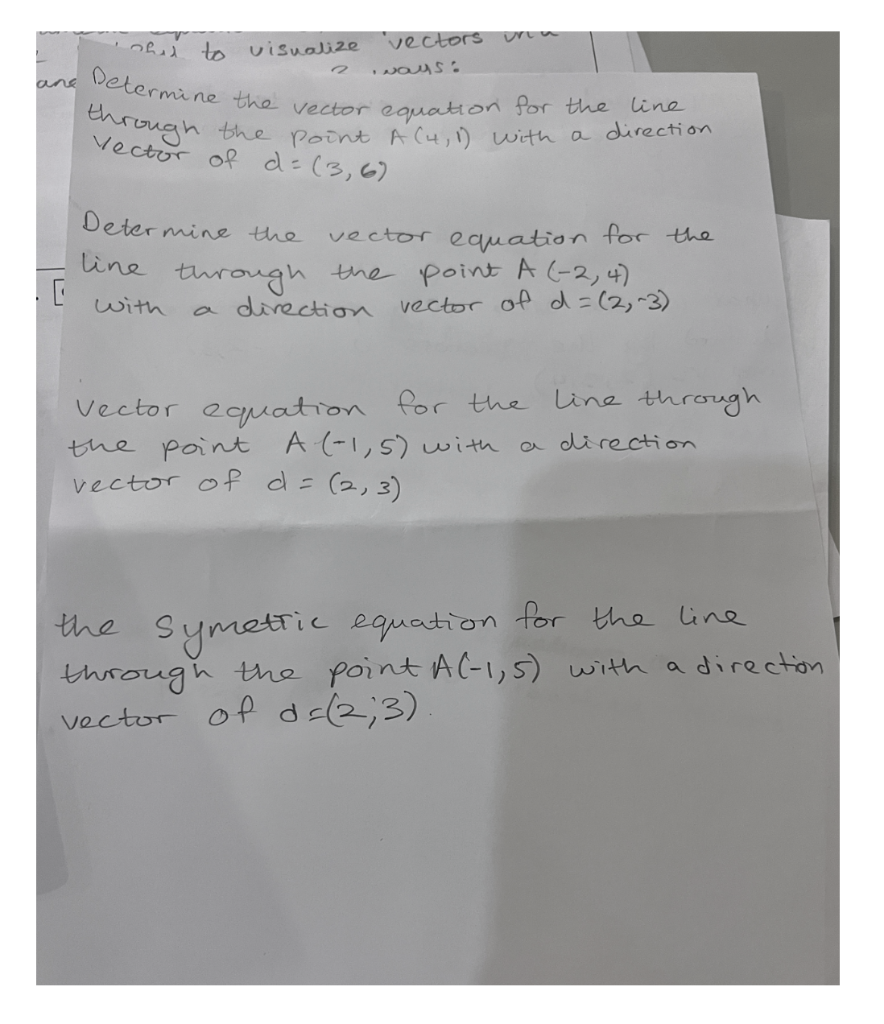 to visualize vectors in a
2 ways:
and
Determine the vector equation for the line
through the point A (4,1) with a direction
vector of d = (3,6)
Determine the vector equation for the
line through the point A (-2,4)
with a direction vector of d = (2,-3)
Vector equation for the line through
the point A (-1,5) with a direction
vector of d = (2,3)
the Symetric equation for the line
through the point A(-1,5) with a direction
vector of d=(2;3).